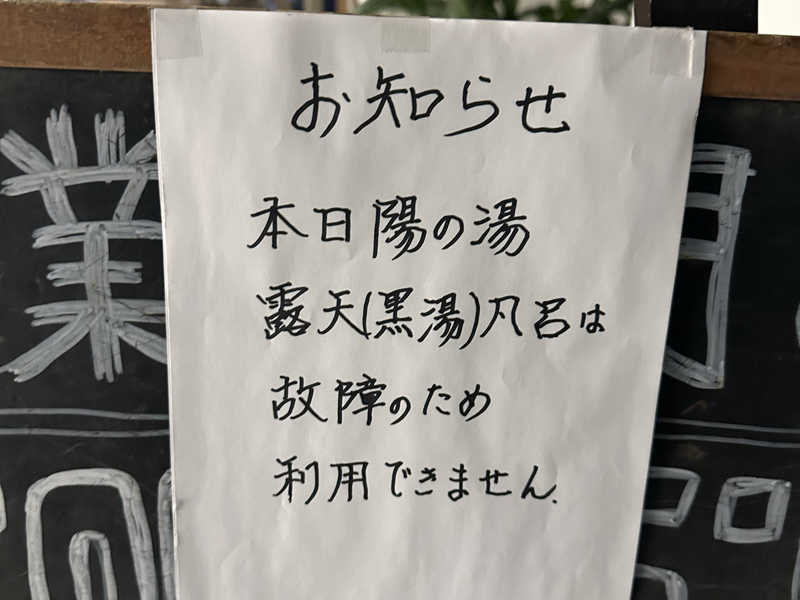 お知らせ
本日陽の湯
露天(黒湯)風呂は
故障のため
利用できません.
業